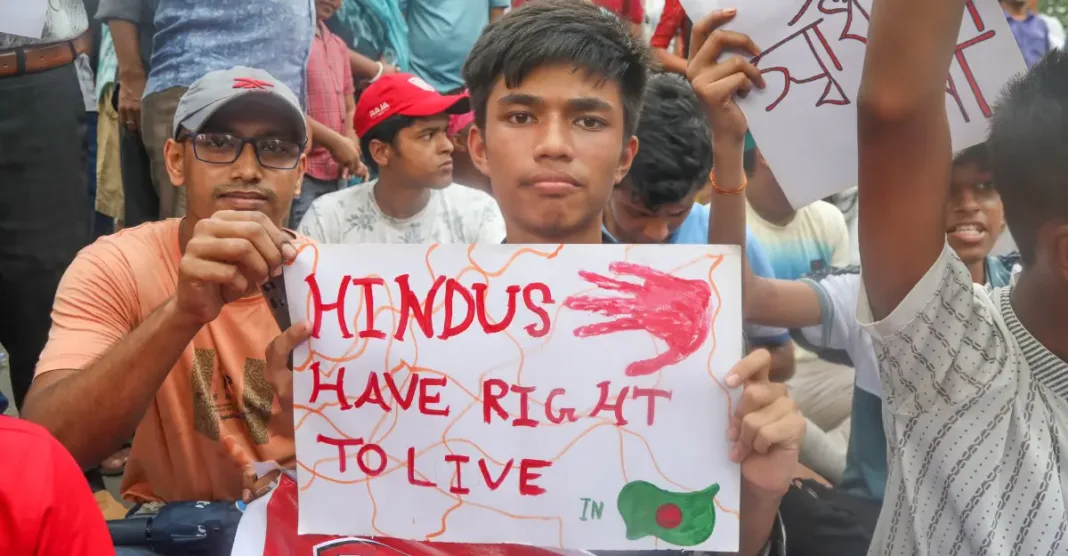 HINDUS
HAVE RIGHT
TO LIVE
IN
RAJA